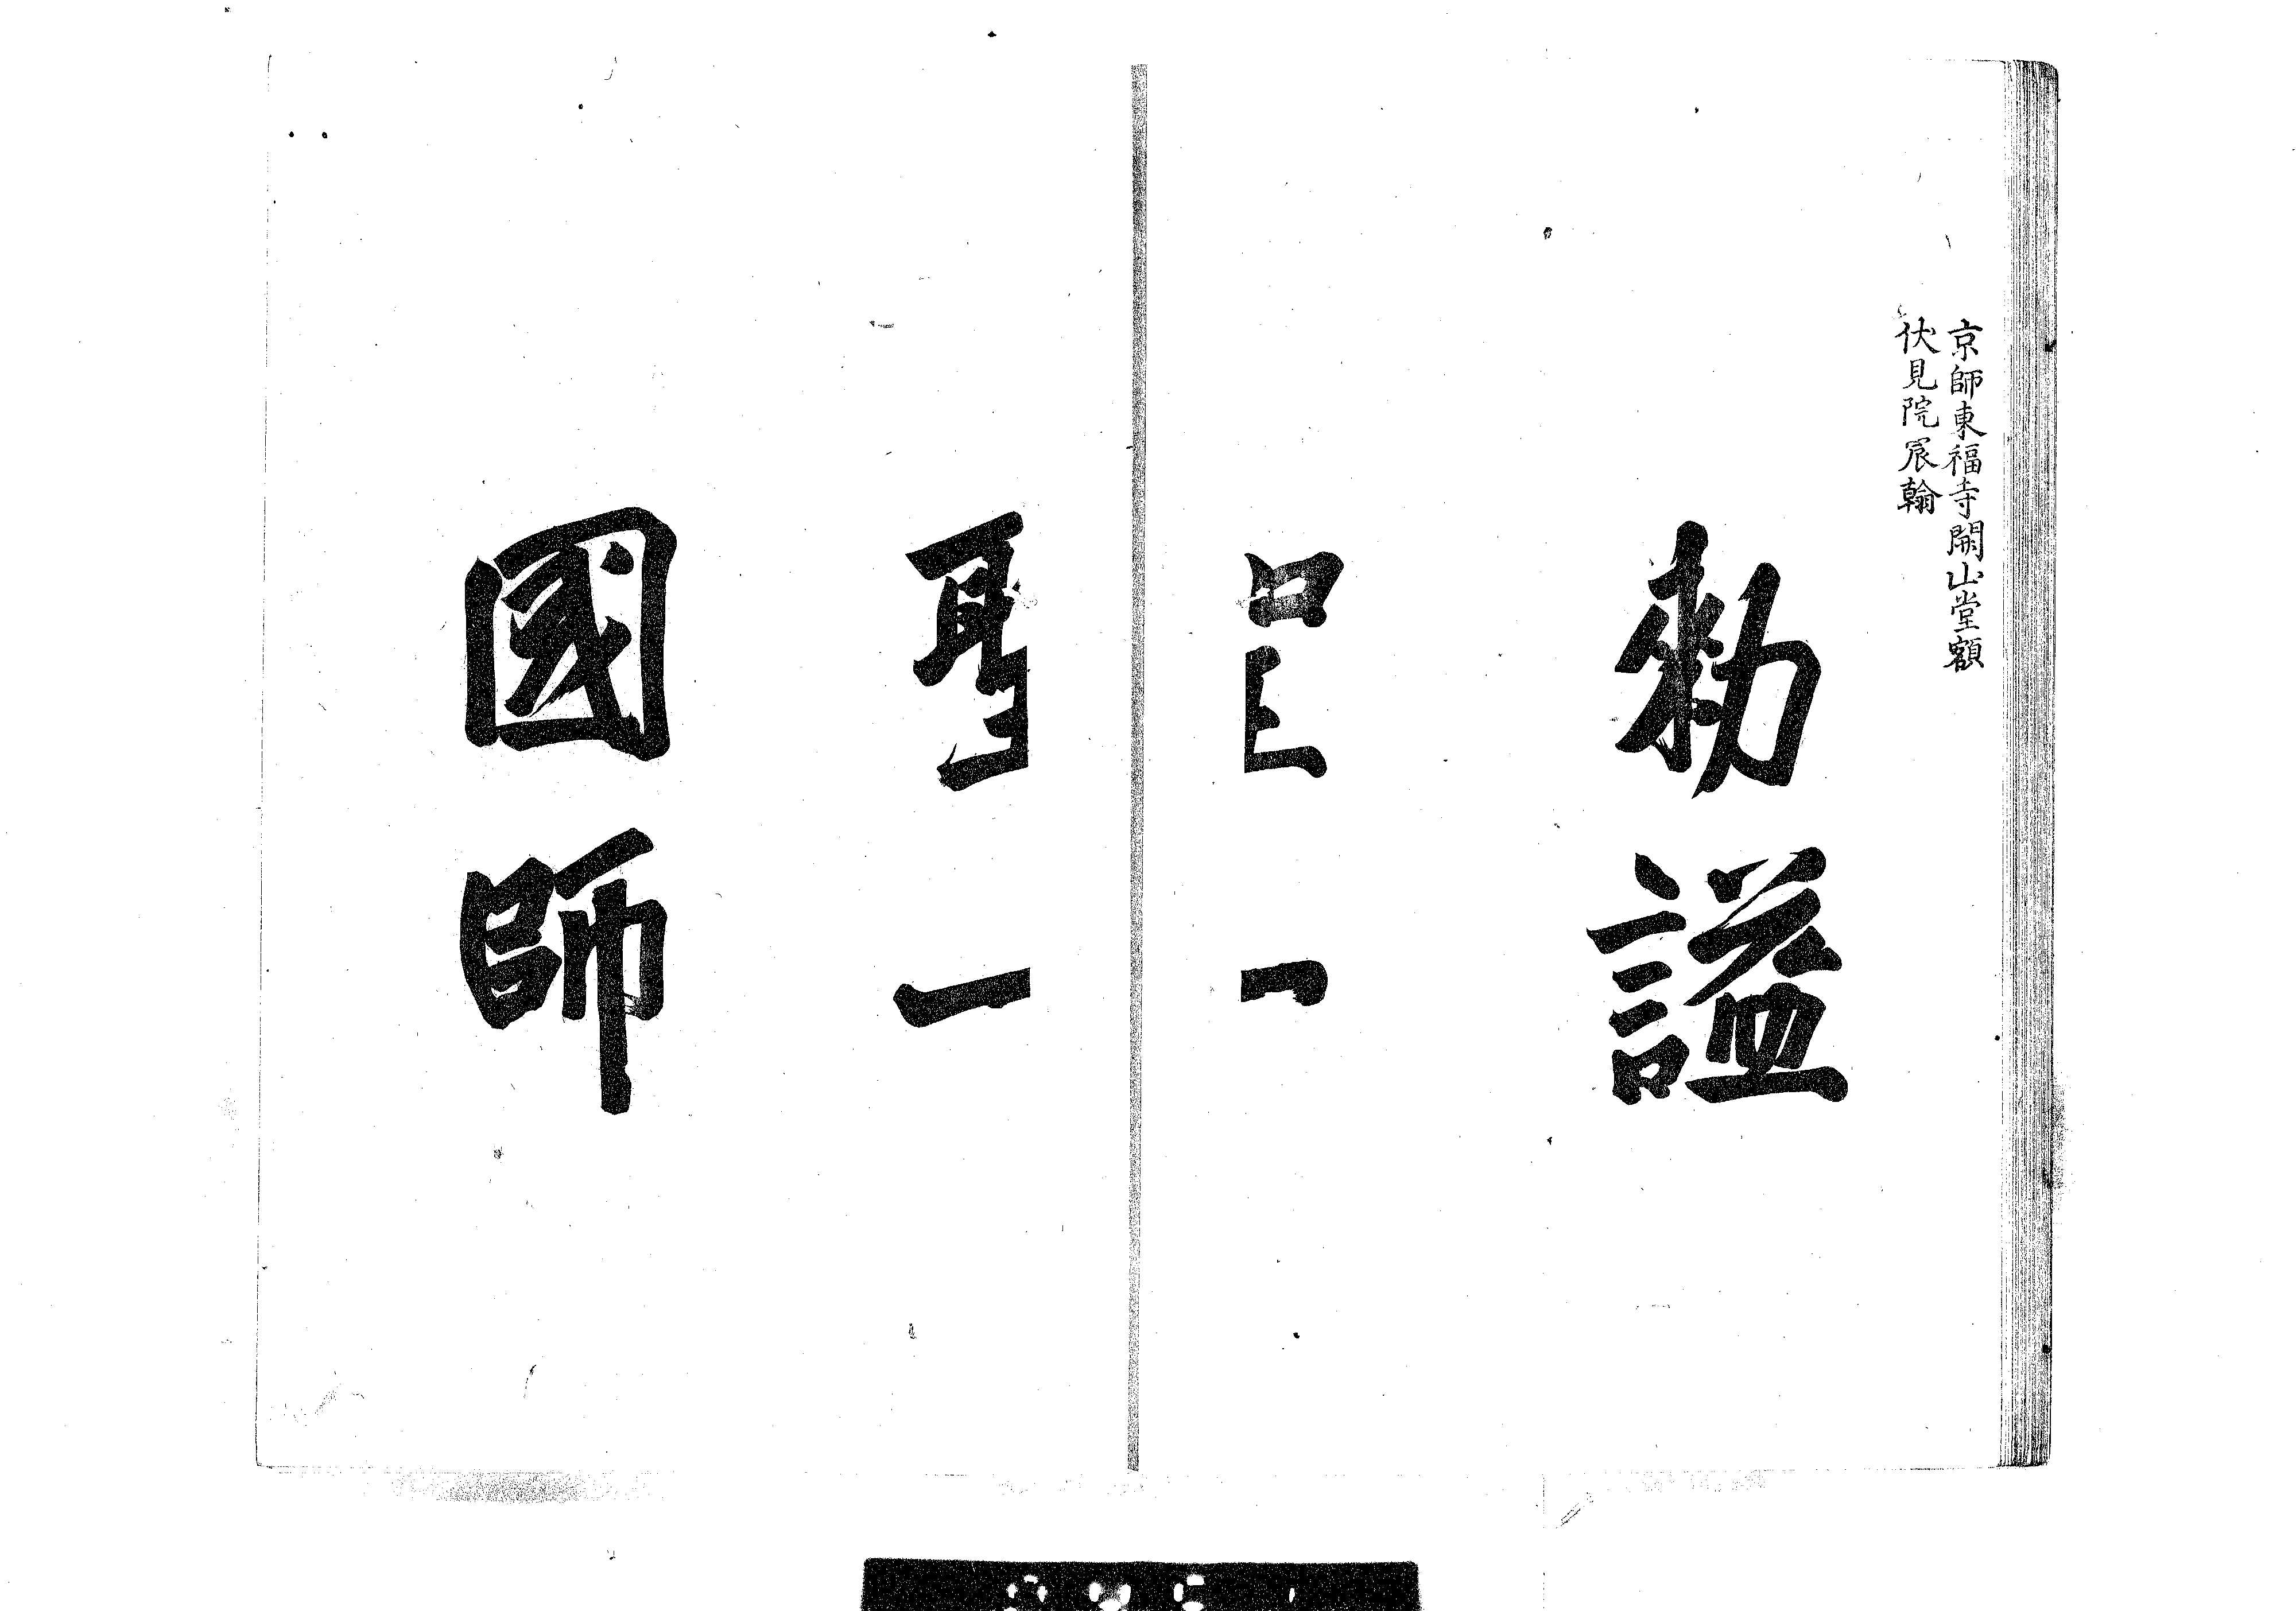 京師東福寺開山堂額
伏見院宸翰
勅謚
聖一
國師